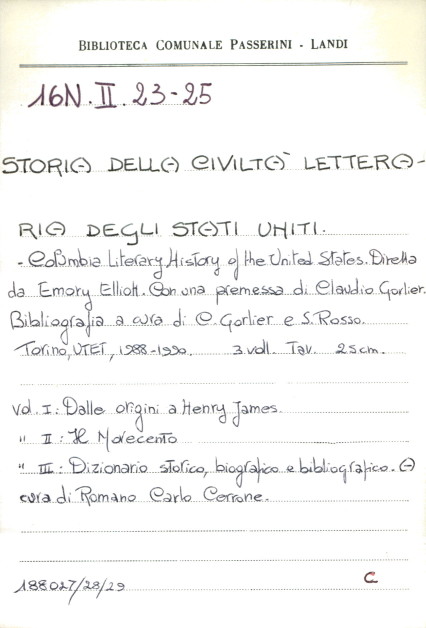 BIBLIOTECA COMUNALE PASSERINI - LANDI
16N.II.23-25
STORIA DELLA CIVILTÀ LETTERA-
RIA DEGLI STATI UNITI.
- Columbia Literary History of the United States. Diretta
da Emory Elliott. Con una premessa di Claudio Gorlier.
Bibliografia a cura di C. Gorlier e S. Rosso.
Torino, UTET, 1988-1990. 3 voll. Tav. 25 cm.
vol. I: Dalle origini a Henry James.
" II: Il Novecento
" III: Dizionario storico, biografico e bibliografico. A
cura di Romano Carlo Cerrone.
188027/28/29
C